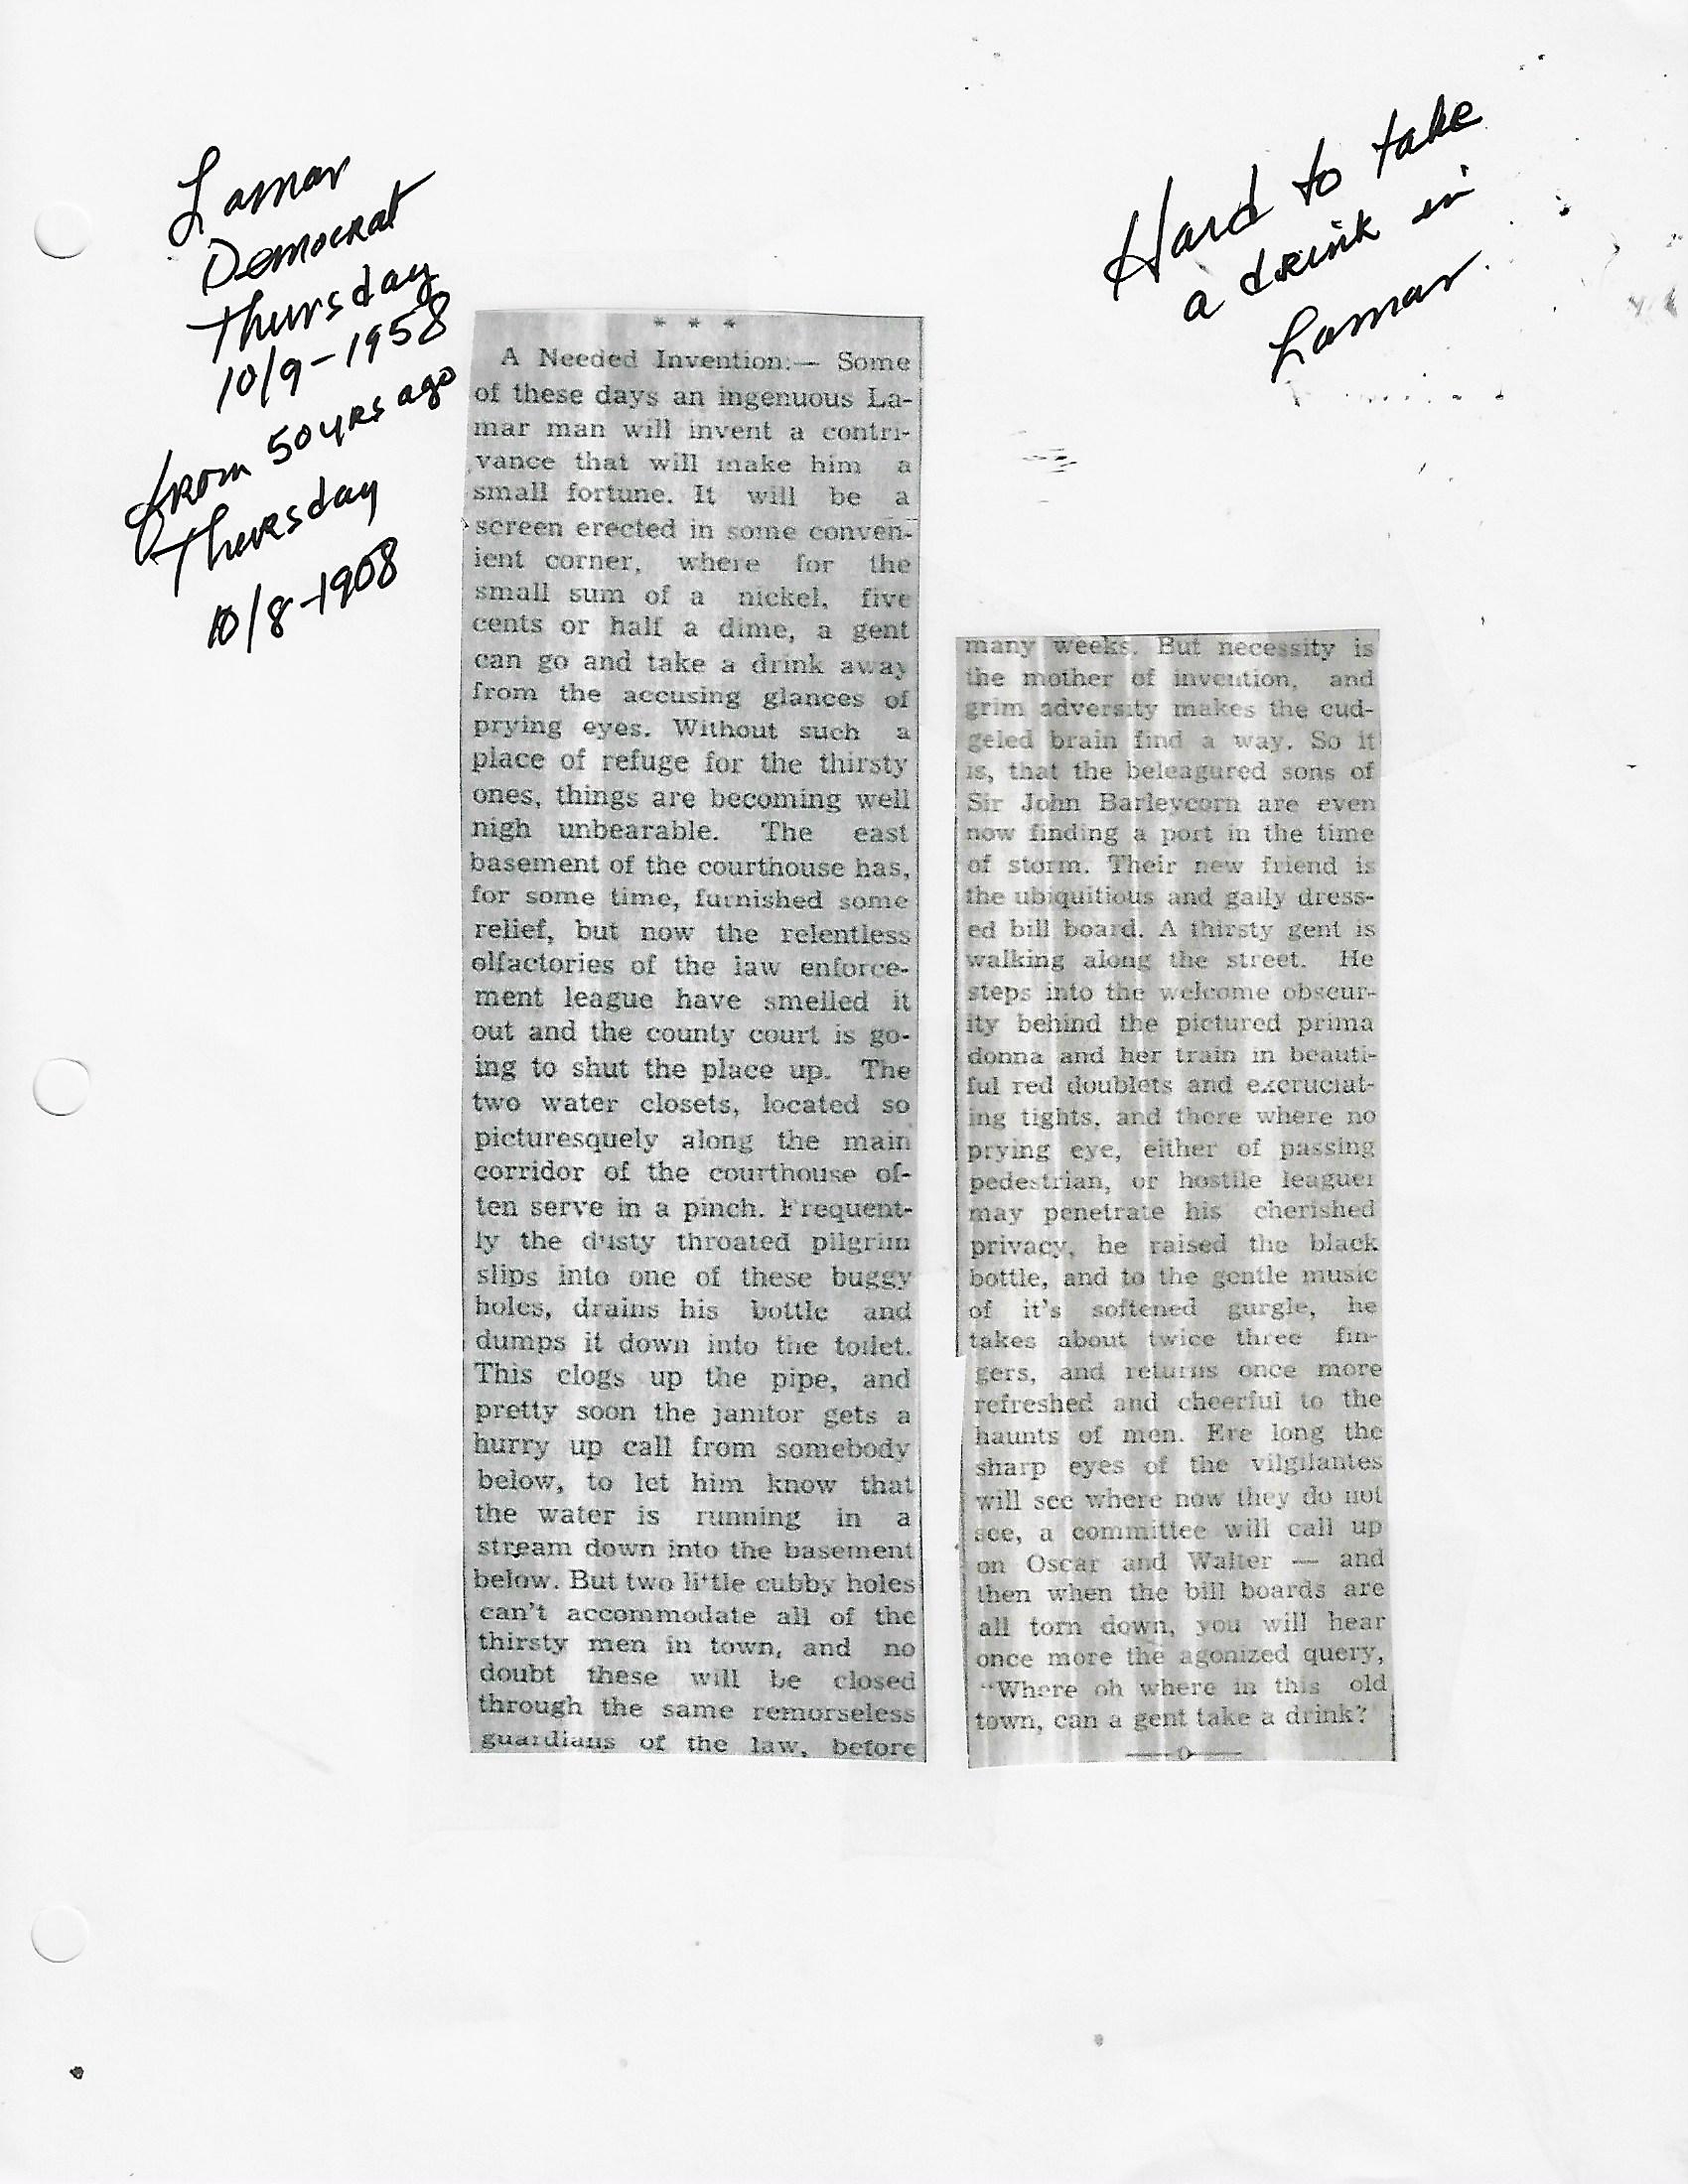 Lamar
Democrat
Thursday
10/9-1958
from 50 yrs ago
Thursday
10/8-1908
Hard to take
a drink in
Lamar.
* * *
A Needed Invention:— Some
of these days an ingenuous La-
mar man will invent a contri-
vance that will make him a
small fortune. It will be a
screen erected in some conven-
ient corner, where for the
small sum of a nickel, five
cents or half a dime, a gent
can go and take a drink away
from the accusing glances of
prying eyes. Without such a
place of refuge for the thirsty
ones, things are becoming well
nigh unbearable. The east
basement of the courthouse has,
for some time, furnished some
relief, but now the relentless
olfactories of the law enforce-
ment league have smelled it
out and the county court is go-
ing to shut the place up. The
two water closets, located so
picturesquely along the main
corridor of the courthouse of-
ten serve in a pinch. Frequent-
ly the dusty throated pilgrim
slips into one of these buggy
holes, drains his bottle and
dumps it down into the toilet.
This clogs up the pipe, and
pretty soon the janitor gets a
hurry up call from somebody
below, to let him know that
the water is running in a
stream down into the basement
below. But two little cubby holes
can't accommodate all of the
thirsty men in town, and no
doubt these will be closed
through the same remorseless
guardians of the law, before
many weeks. But necessity is
the mother of invention, and
grim adversity makes the cud-
geled brain find a way. So it
is, that the beleagured sons of
Sir John Barleycorn are even
now finding a port in the time
of storm. Their new friend is
the ubiquitious and gaily dress-
ed bill board. A thirsty gent is
walking along the street. He
steps into the welcome obscur-
ity behind the pictured prima
donna and her train in beauti-
ful red doublets and excruciat-
ing tights, and there where no
prying eye, either of passing
pedestrian, or hostile leaguer
may penetrate his cherished
privacy, he raised the black
bottle, and to the gentle music
of it's softened gurgle, he
takes about twice three fin-
gers, and returns once more
refreshed and cheerful to the
haunts of men. Ere long the
sharp eyes of the vilgilantes
will see where now they do not
see, a committee will call up
on Oscar and Walter — and
then when the bill boards are
all torn down, you will hear
once more the agonized query,
"Where oh where in this old
town, can a gent take a drink?"
—o—